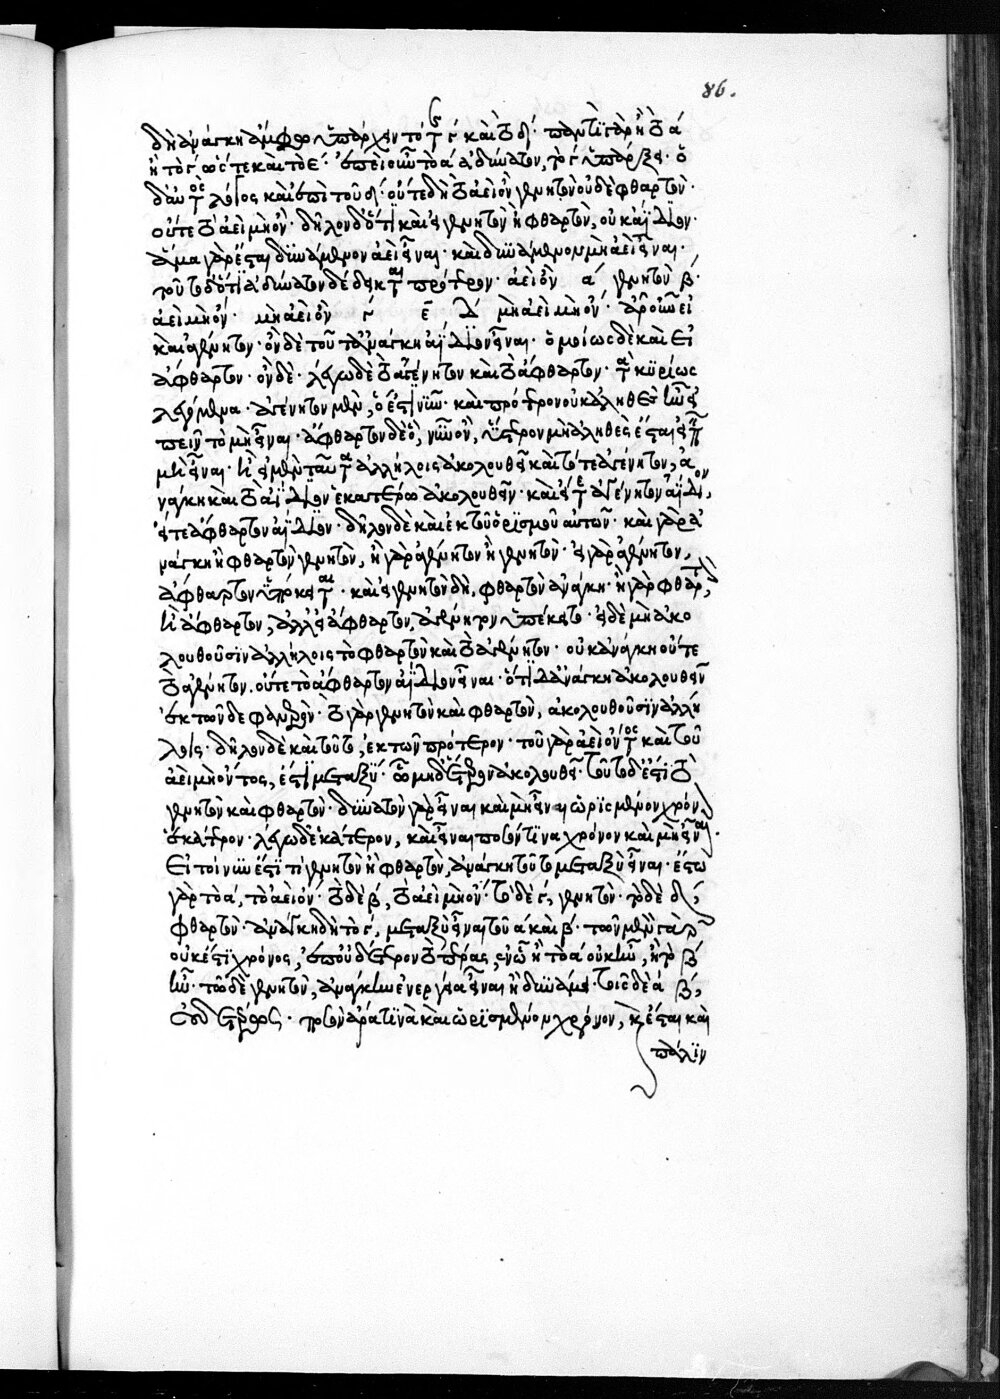 δὴ ἀνάγκη ἄμφω ὑπάρχειν τό τε γ καὶ τὸ δ· παντὶ γὰρ ἢ τὸ α
ἢ τὸ γ· ὥστε καὶ τὸ ε· ἐπεὶ οὖν τὸ α ἀδύνατον, τὸ γ ὑπάρξει· ὁ
δ' αὐτὸς λόγος καὶ ἐπὶ τοῦ δ· οὔτε δὴ τὸ ἀεὶ ὂν γενητὸν οὐδὲ φθαρτόν·
οὔτε τὸ ἀεὶ μὴ ὄν· δῆλον δ' ὅτι καὶ εἰ γενητὸν ἢ φθαρτὸν, οὐκ ἀΐδιον·
ἅμα γὰρ ἔσται δυνάμενον ἀεὶ εἶναι· καὶ δυνάμενον μὴ ἀεὶ εἶναι·
τοῦτο δ' ὅτι ἀδύνατον δέδεικται πρότερον· ἀεὶ ὂν α γενητὸν β·
ἀεὶ μὴ ὄν· μὴ ἀεὶ ὂν γ ε δ μὴ ἀεὶ μὴ ὄν· ἆρ' οὖν εἰ
καὶ ἀγένητον· ὂν δὲ τοῦτ' ἀνάγκη ἀΐδιον εἶναι· ὁμοίως δὲ καὶ εἰ
ἄφθαρτον· ὂν δέ· λέγω δὲ τὸ ἀγένητον καὶ τὸ ἄφθαρτον· τὰ κυρίως
λεγόμενα· ἀγένητον μὲν, ὃ ἔστι νῦν· καὶ πρότερον οὐκ ἀληθὲς ἦν εἰ
πεῖν τὸ μὴ εἶναι· ἄφθαρτον δὲ ὃ, νῦν ὂν, ὕστερον μὴ ἀληθὲς ἔσται εἰπεῖν
μὴ εἶναι· ἢ εἰ μὲν ταῦτα ἀλλήλοις ἀκολουθεῖ καὶ τό τε ἀγένητον, ἀ
νάγκη καὶ τὸ ἀΐδιον ἑκατέρω ἀκολουθεῖν· καὶ εἴτε ἀγένητον ἀΐδιον,
εἴτε ἄφθαρτον ἀΐδιον· δῆλον δὲ καὶ ἐκ τοῦ ὁρισμοῦ αὐτῶν· καὶ γὰρ ἀ
νάγκη ἢ φθαρτὸν γενητὸν, ἢ γὰρ ἀγένητον ἢ γενητόν· εἰ γὰρ ἀγένητον,
ἄφθαρτον ὑπόκειται· καὶ εἰ γενητὸν δὴ, φθαρτὸν ἀνάγκη· ἢ γὰρ φθαρτὸν,
ἢ ἄφθαρτον, ἀλλ' εἰ ἄφθαρτον, ἀγένητον ὑπέκειτο· εἰ δὲ μὴ ἀκο
λουθοῦσιν ἀλλήλοις τὸ φθαρτὸν καὶ τὸ ἀγένητον· οὐκ ἀνάγκη οὔτε
τὸ ἀγένητον, οὔτε τὸ ἄφθαρτον ἀΐδιον εἶναι· ὅτι δ' ἀνάγκη ἀκολουθεῖν
ἐκ τῶνδε φανερόν· τὸ γὰρ γενητὸν καὶ φθαρτὸν, ἀκολουθοῦσιν ἀλλή
λοις· δῆλον δὲ καὶ τοῦτο, ἐκ τῶν πρότερον· τοῦ γὰρ ἀεὶ ὄντος καὶ τοῦ
ἀεὶ μὴ ὄντος, ἔστι μεταξὺ· ᾧ μηδέτερον ἀκολουθεῖ· τοῦτο δ' ἐστὶ τὸ
γενητὸν καὶ φθαρτόν· δυνατὸν γὰρ εἶναι καὶ μὴ εἶναι ὡρισμένον χρόνον
ἑκάτερον· λέγω δ' ἑκάτερον, καὶ εἶναι ποσόν τινα χρόνον καὶ μὴ εἶναι·
εἰ τοίνυν ἔστι τι γενητὸν ἢ φθαρτὸν, ἀνάγκη τοῦτο μεταξὺ εἶναι· ἔστω
γὰρ τὸ α, τὸ ἀεὶ ὄν· τὸ δὲ β, τὸ ἀεὶ μὴ ὄν· τὸ δὲ γ, γενητὸν· τὸ δὲ δ,
φθαρτόν· ἀνάγκη δὴ τὸ γ, μεταξὺ εἶναι τοῦ α καὶ β· τῶν μὲν γὰρ
οὐκ ἔστι χρόνος, ἐπ' οὐδέτερον τὸ πέρας, ἐν ᾧ ἢ τὸ α οὐκ ἦν, ἢ τὸ β
ἦν· τῶ δὲ γενητῶ, ἀνάγκη ἐνεργείᾳ εἶναι ἢ δυνάμει· τοῖς δὲ α β,
οὐδετέρως· ποσὸν ἄρα τινὰ καὶ ὡρισμένον χρόνον, καὶ ἔσται καὶ
πάλιν